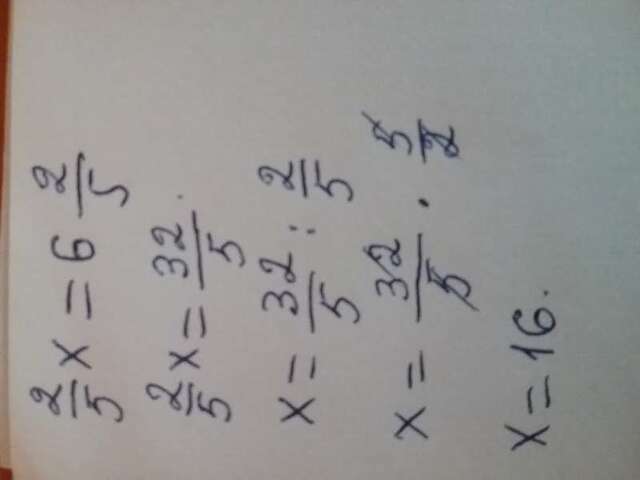 2/5 x = 6 2/5
2/5 x = 32/5
x = 32/5 : 2/5
x = 32/5 · 5/2
x = 16.